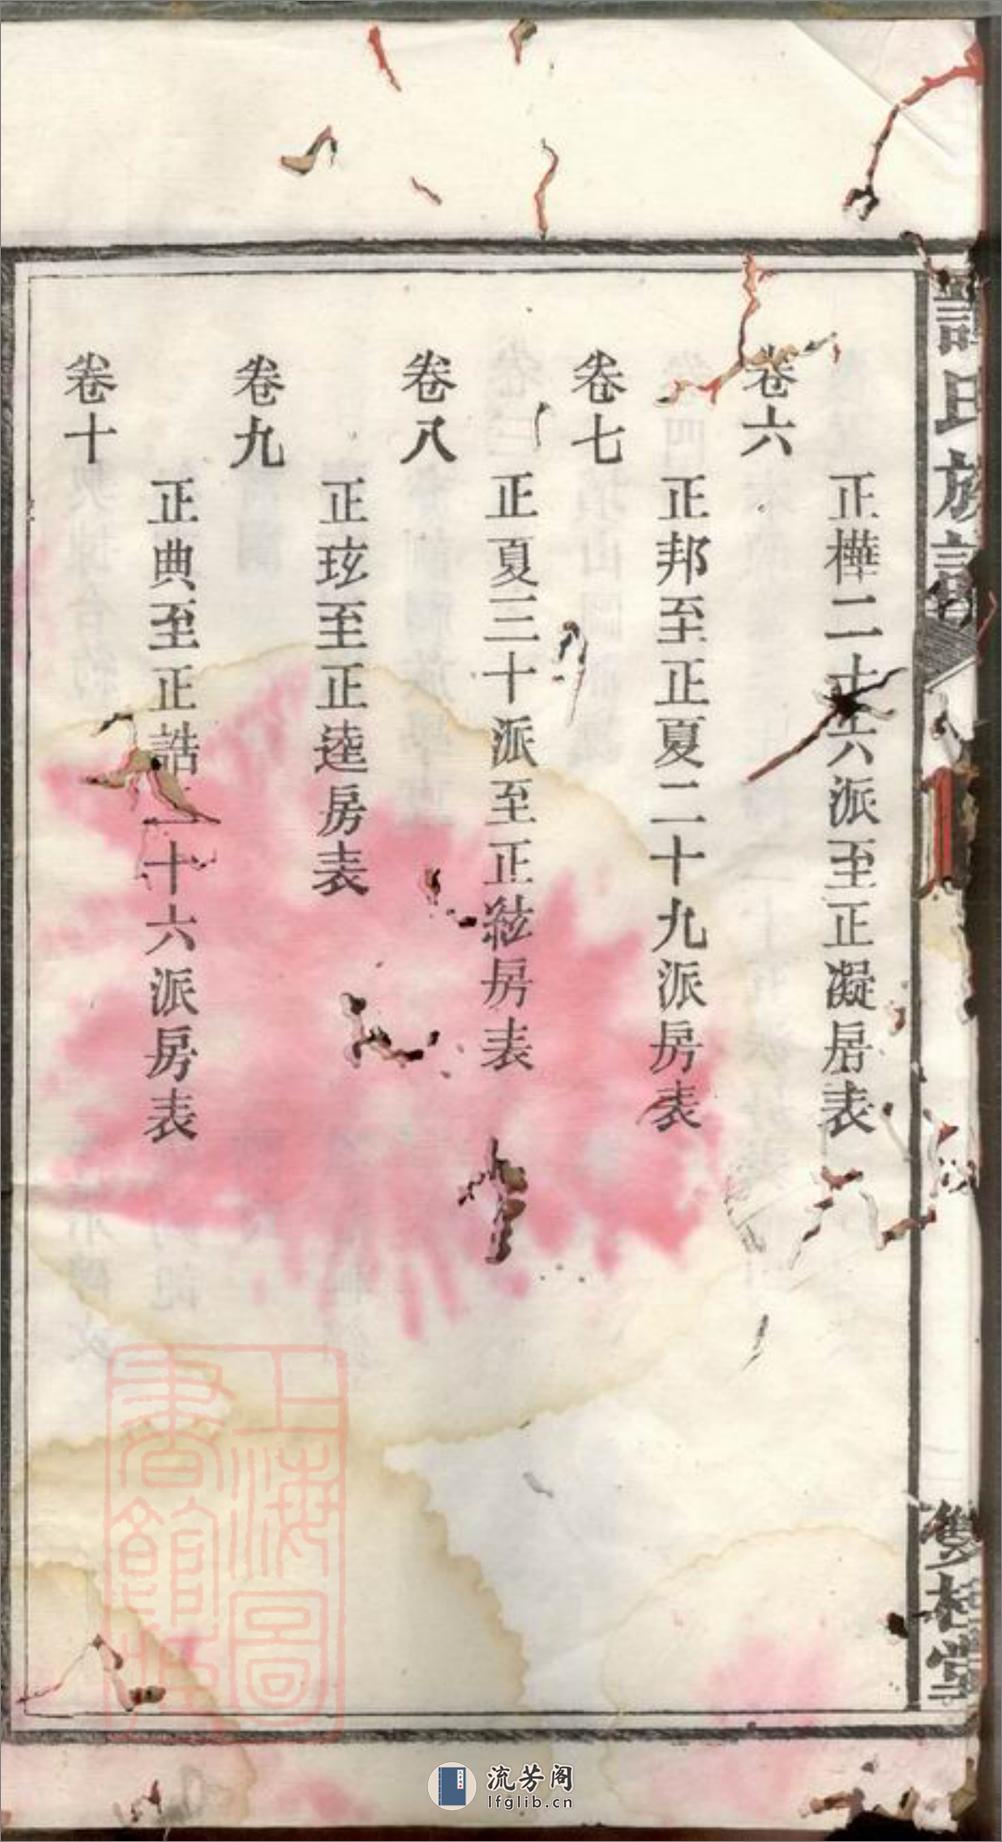 氏族譜
雙桂堂
正樺二十六派至正凝房表
卷六
正邦至正夏二十九派房表
卷七
正夏三十派至正絃房表
卷八
正玹至正逵房表
卷九
正典至正誥二十六派房表
卷十
上海圖書館藏
流芳阁
lfglib.cn